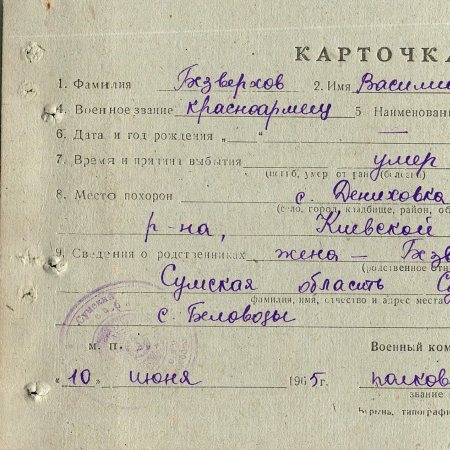 КАРТОЧКА
1. Фамилия Безверхов 2. Имя Васили
4. Военное звание красноармеец 5 Наименован
6. Дата и год рождения „ — “ —
7. Время и причина выбытия умер
(погиб, умер от ран (болезни)
8. Место похорон с. Дениховка
(село, город, кладбище, район, об
р-на, Киевской
9. Сведения о родственниках жена — Безв
(родственное отн
Сумская область С
фамилия, имя, отчество и адрес места
с. Беловоды
м. п. Военный ком
„10“ июня 1965г. полков
звание
типограф